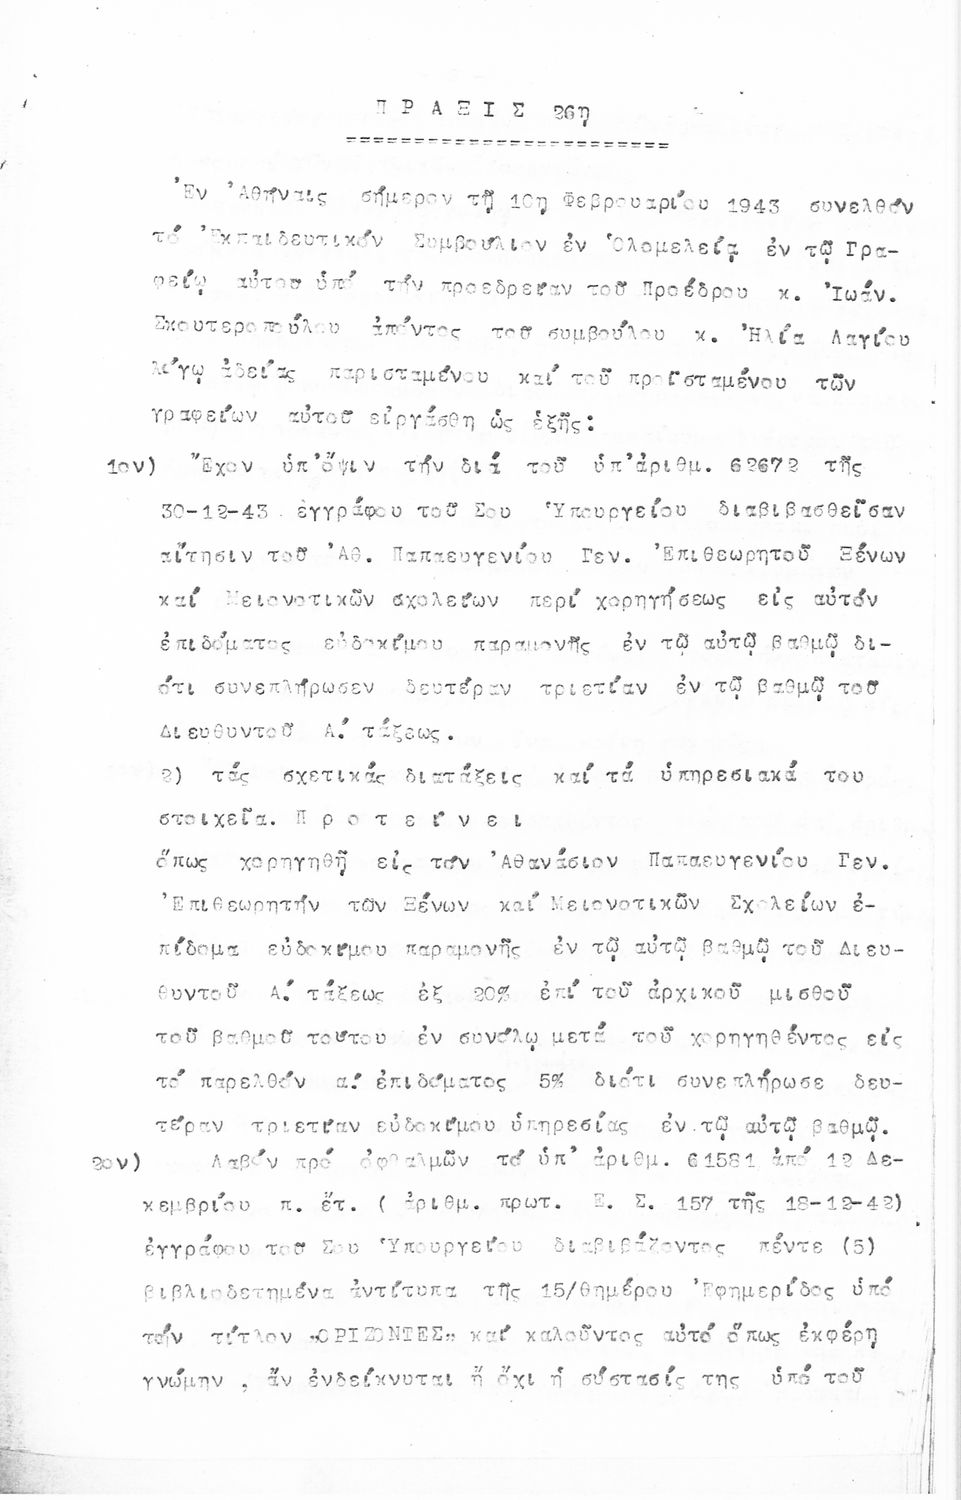 Π Ρ Α Ξ Ι Σ 26η
========================
Ἐν Ἀθήναις σήμερον τῇ 10η Φεβρουαρίου 1943 συνελθόν
τό Ἐκπαιδευτικόν Συμβούλιον ἐν Ὁλομελείᾳ ἐν τῷ Γρα-
φείῳ αὐτοῦ ὑπό τήν προεδρείαν τοῦ Προέδρου κ. Ἰωάν.
Σκουτεροπούλου ἀπόντος τοῦ συμβούλου κ. Ἠλία Λαγίου
λόγῳ ἀδείας παρισταμένου καί τοῦ προϊσταμένου τῶν
γραφείων αὐτοῦ εἰργάσθη ὡς ἑξῆς:
1ον) Ἔχον ὑπ'ὄψιν τήν διά τοῦ ὑπ'ἀριθμ. 62672 τῆς
30-12-43 ἐγγράφου τοῦ Σου Ὑπουργείου διαβιβασθεῖσαν
αἴτησιν τοῦ Ἀθ. Παπαευγενίου Γεν. Ἐπιθεωρητοῦ Ξένων
καί Μειονοτικῶν σχολείων περί χορηγήσεως εἰς αὐτόν
ἐπιδόματος εὐδοκίμου παραμονῆς ἐν τῷ αὐτῷ βαθμῷ δι-
ότι συνεπλήρωσεν δευτέραν τριετίαν ἐν τῷ βαθμῷ τοῦ
Διευθυντοῦ Α΄ τάξεως.
2) τάς σχετικάς διατάξεις καί τά ὑπηρεσιακά του
στοιχεῖα. Π ρ ο τ ε ί ν ε ι
ὅπως χορηγηθῇ εἰς τόν Ἀθανάσιον Παπαευγενίου Γεν.
Ἐπιθεωρητήν τῶν Ξένων καί Μειονοτικῶν Σχολείων ἐ-
πίδομα εὐδοκίμου παραμονῆς ἐν τῷ αὐτῷ βαθμῷ τοῦ Διευ-
θυντοῦ Α΄ τάξεως ἐξ 20% ἐπί τοῦ ἀρχικοῦ μισθοῦ
τοῦ βαθμοῦ τούτου ἐν συνόλῳ μετά τοῦ χορηγηθέντος εἰς
τό παρελθόν α΄ ἐπιδόματος 5% διότι συνεπλήρωσε δευ-
τέραν τριετίαν εὐδοκίμου ὑπηρεσίας ἐν τῷ αὐτῷ βαθμῷ.
2ον) Λαβόν πρό ὀφθαλμῶν τό ὑπ' ἀριθμ. 61581 ἀπό 12 Δε-
κεμβρίου π. ἔτ. ( ἀριθμ. πρωτ. Ε. Σ. 157 τῆς 18-12-42)
ἐγγράφου τοῦ Σου Ὑπουργείου διαβιβάζοντος πέντε (5)
βιβλιοδετημένα ἀντίτυπα τῆς 15/θημέρου Ἐφημερίδος ὑπό
τόν τίτλον «ΟΡΙΖΟΝΤΕΣ» καί καλοῦντος αὐτό ὅπως ἐκφέρῃ
γνώμην , ἄν ἐνδείκνυται ἤ ὄχι ἡ σύστασίς της ὑπό τοῦ